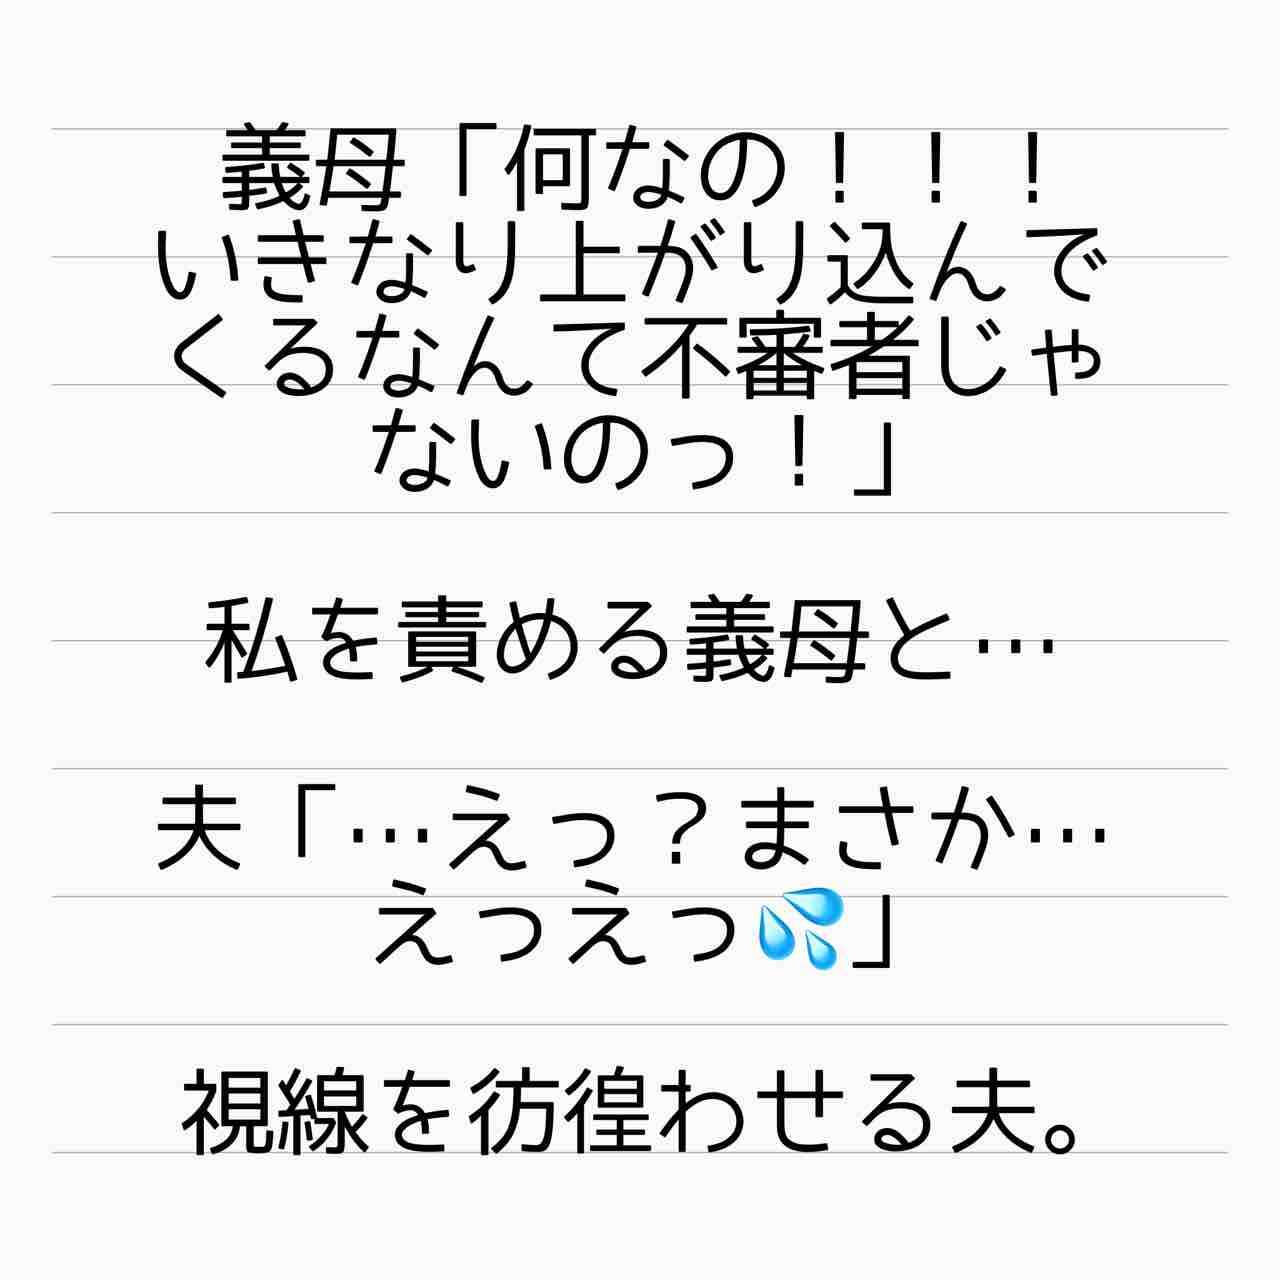 義母「何なの！！！
いきなり上がり込んで
くるなんて不審者じゃ
ないのっ！」
私を責める義母と…
夫「…えっ？まさか…
えっえっ💦」
視線を彷徨わせる夫。